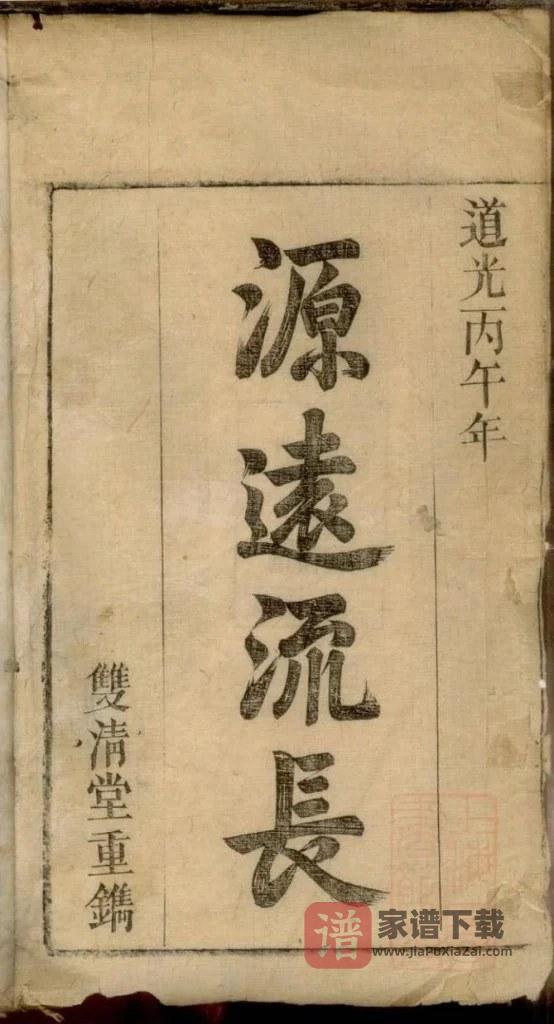 道光丙午年
源遠流長
雙清堂重鐫
谱 家谱下载
www.JiaPuXiaZai.com